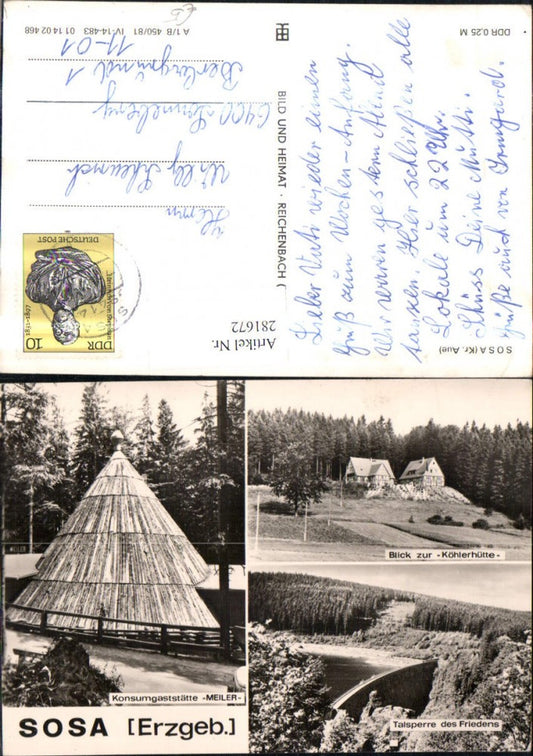 Lieber Vati wieder einen
Gruß zum Wochen-Anfang.
Wir waren gestern Abend
tanzen. Hier schließen alle
Lokale um 22 Uhr.
Tschüss Deine Mutti.
Grüße auch von Irmgard.
SOSA (Kr. Aue)
BILD UND HEIMAT · REICHENBACH (
DDR 0,25 M
A 1/B 450/81 IV-14-483 01 14 02 468
Herrn
Willy
6400 Sonneberg
1
11-01
DDR
10
DEUTSCHE POST
Artikel Nr.
281672
MEILER
Konsumgaststätte -MEILER-
Blick zur -Köhlerhütte-
Talsperre des Friedens
SOSA [Erzgeb.]